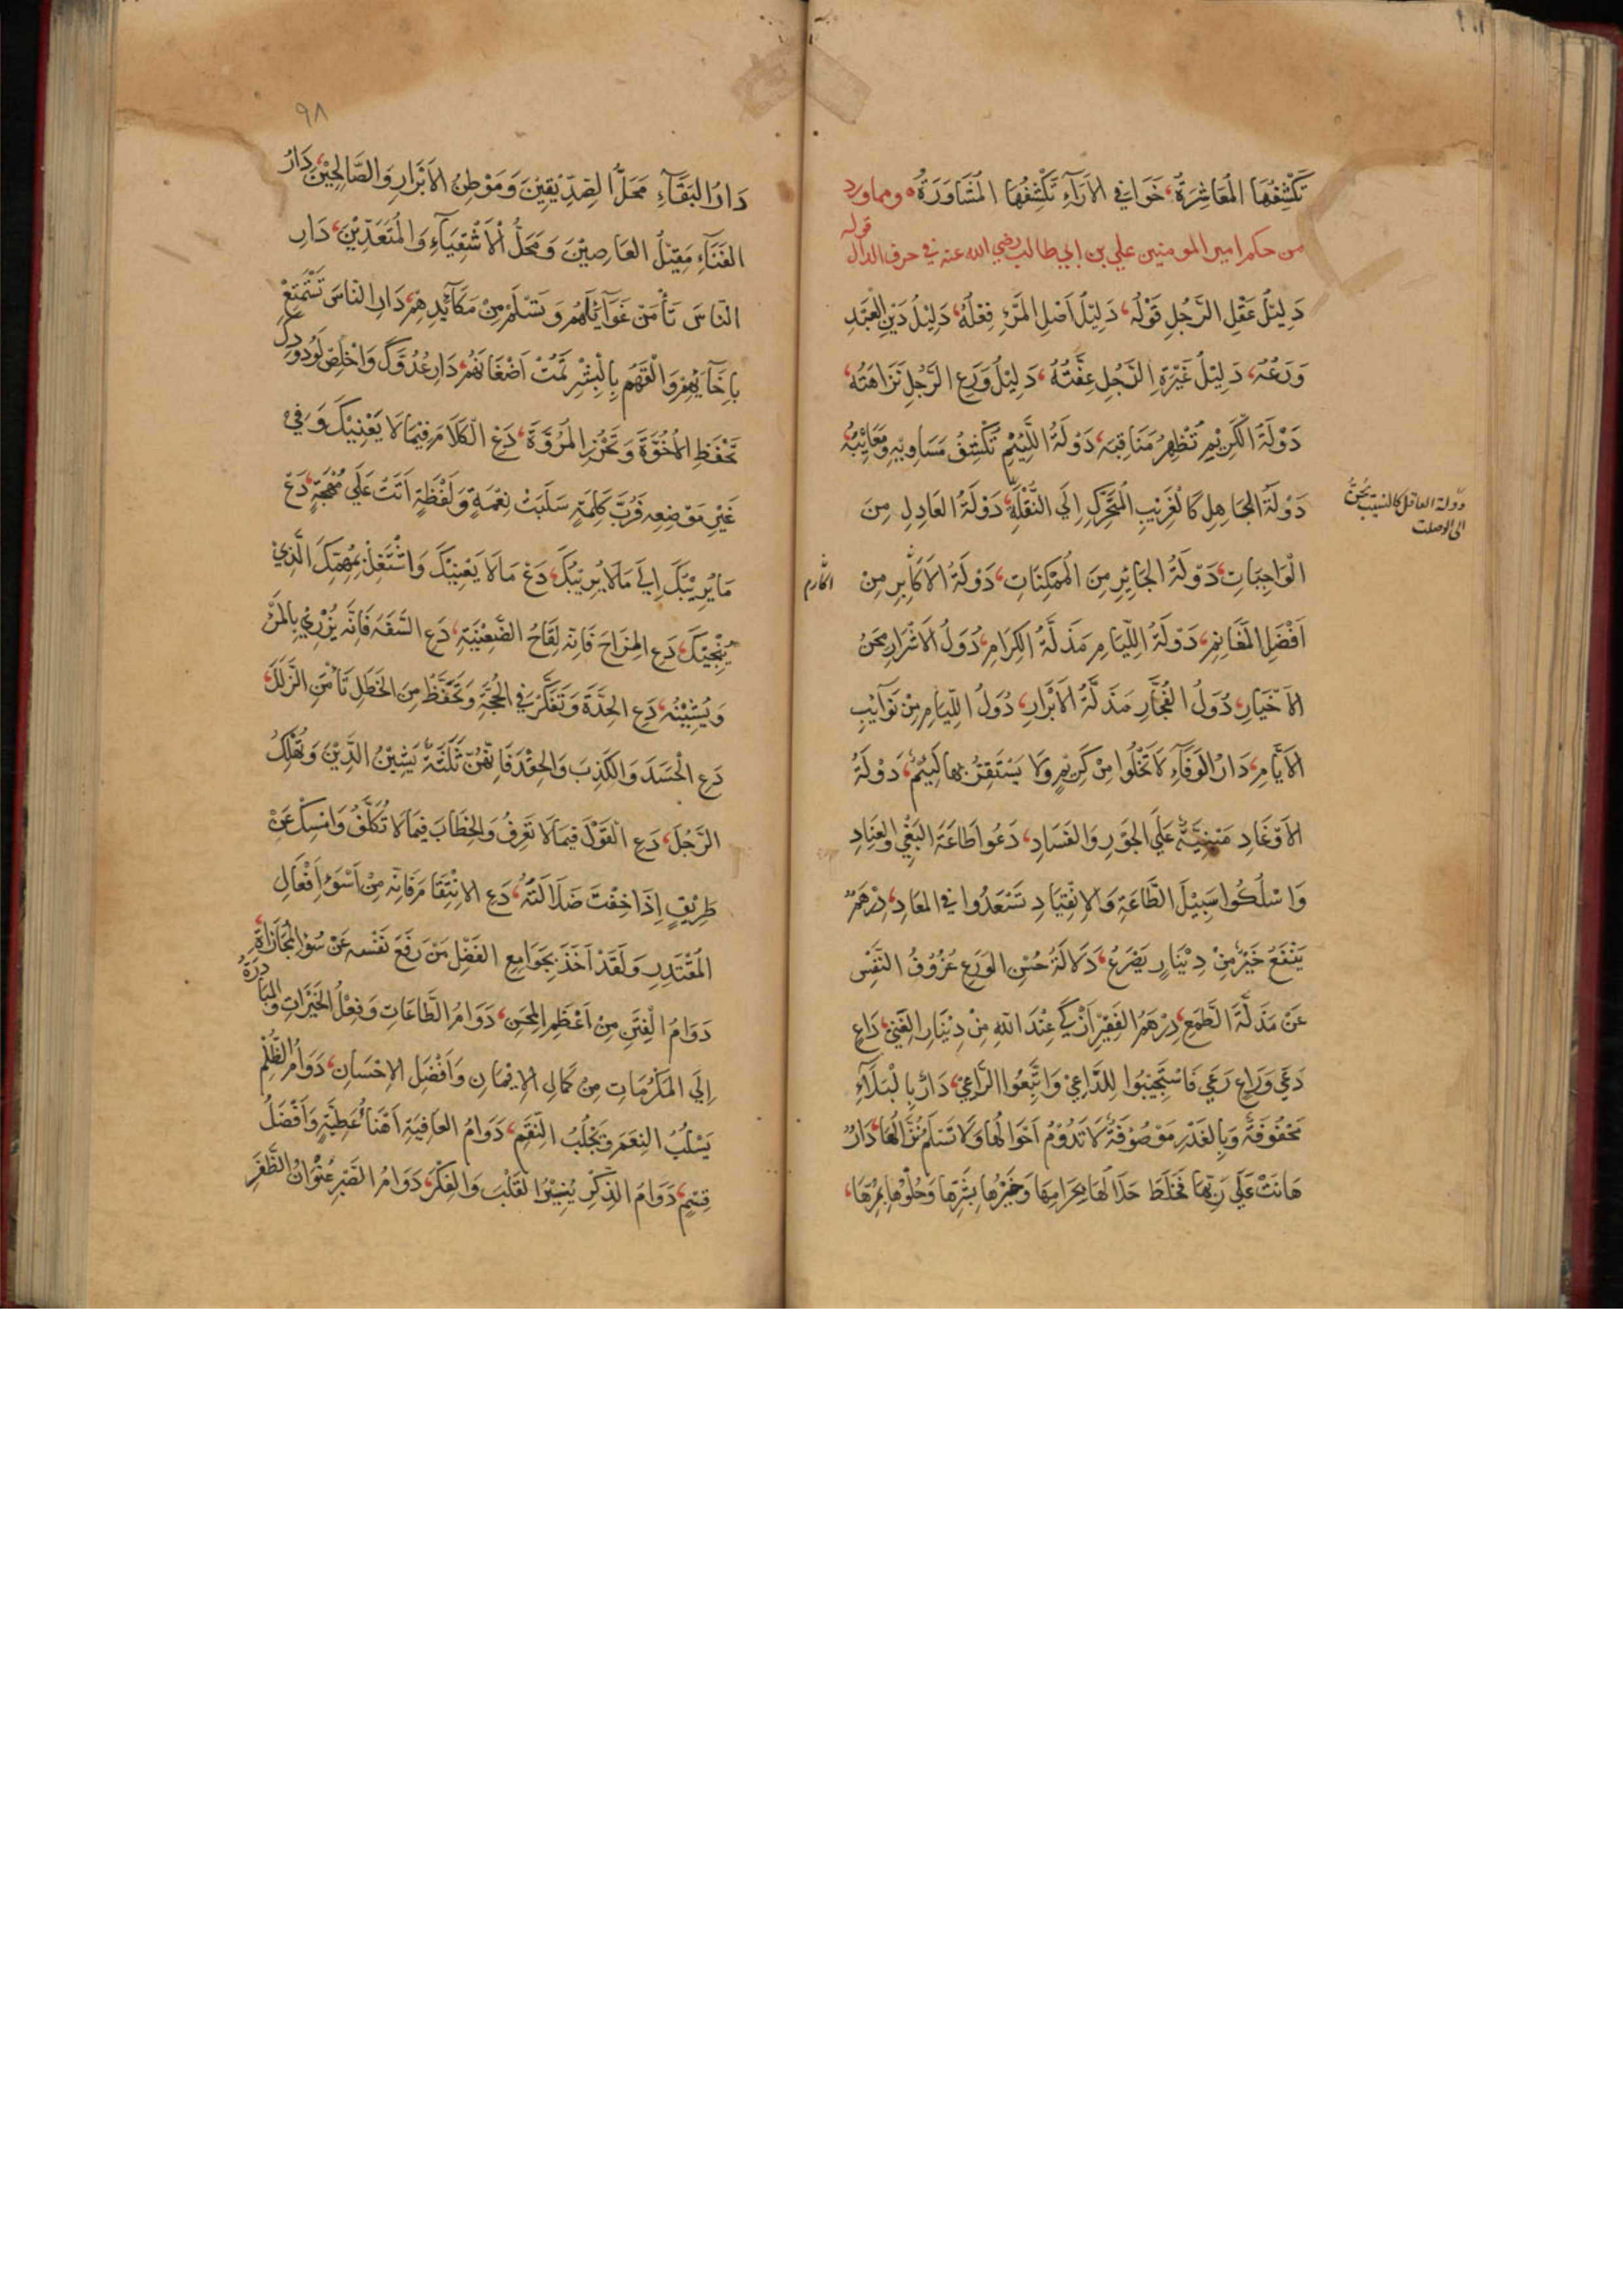 تَكْشِفُهَا المُعَاشِرَةُ، خَوَافِي الآرَاءِ تَكْشِفُهَا المُشَاوَرَةُ ه ومما ورد
من حكم امير المومنين علي بن ابي طالب رضي الله عنه في حرف الدال
قوله
دَلِيْلُ عَقْلِ الرَّجُلِ قَوْلُه، دَلِيْلُ اَصْلِ المَرْءِ فِعْلُهُ، دَلِيْلُ دَيْنِ العَبْدِ
وَرَعُهُ، دَلِيْلُ غَيْرَةِ الرَّجُلِ عِفَّتُهُ، دَلِيْلُ وَرَعِ الرَّجُلِ نَزَاهَتُهُ،
دَوْلَةُ الْكَرِيْمِ تُظْهِرُ مَنَاقِبَه، دَوْلَةُ اللَّئِيْمِ تَكْشِفُ مَسَاوِيَه وَمَعَايِبُهُ
دَوْلَةُ الجَاهِلِ كَالْغَرِيْبِ الْمُتَحَرِّكِ اِلَي النُّقْلَةِ، دَوْلَةُ العَادِلِ مِنَ
دولة العاقل كالنسيب يحن
الى الوصلت
الْوَاجِبَاتِ، دَوْلَةُ الجَايِرِ مِنَ الْمُمْكِنَاتِ، دَوْلَةُ الاَكَابِرِ مِنْ
اَفْضَلِ الْمَغَانِمِ، دَوْلَةُ اللِّيَامِ مَذَلَّةُ الكِرَامِ، دُوَلُ الاَشْرَارِ مِحَنُ
الاَخْيَارِ، دُوَلُ الفُجَّارِ مَذَلَّةُ الاَبْرَارِ، دُوَلُ اللِّيَامِ مِنْ نَوَآيِبِ
الاَيَّامِ، دَارُ الوَفَآءِ لاَ تَخْلُوا مِنْ كَرِيْمٍ وَلا يَسْتَقِرُّ بِها لَئِيْمٌ، دَوْلَةُ
الاَوْغَادِ مَبْنِيَّةٌ عَلَي الجَوْرِ وَالفَسَادِ، دَعُوا طَاعَةَ البَغْيِ وَالعِنَادِ
وَاسْلُكُوا سَبِيْلَ الطَّاعَةِ وَالاِنْقِيَادِ تَسْعَدُوا فِي المَعَادِ، دِرْهَمٌ
يَنْفَعُ خَيْرٌ مِنْ دِيْنَارٍ يَصْرَعُ، دَلالَةُ حُسْنِ الوَرَعِ عُزُوْفُ النَّفْسِ
عَنْ مَذَلَّةِ الطَّمَعِ، دِرْهَمُ الفَقِيْرِ اَزْكَي عِنْدَ اللهِ مِنْ دِيْنَارِ الغَنِيّ، دَاعٍ
دَعَي وَرَاعٍ رَعَي فَاسْتَجِيْبُوا لِلدَّاعِيْ وَاتَّبِعُوا الرَّاعِيْ، دَارٌ بِالْبَلآءِ
مَحْفُوْفَةٌ وَبِالغَدْرِ مَوْصُوْفَةٌ لاَ تَدُوْمُ اَحْوَالُها وَلا تَسْلَمُ نُزَّالُهَا، دَارٌ
هَانَتْ عَلَي رَبِّهَا فَخَلَطَ حَلاَلَهَا بِحَرَامِهَا وَخَيْرَهَا بِشَرِّهَا وَحُلْوَهَا بِمُرِّهَا،
٩٨
دَارُ البَقَآءِ مَحَلُّ الصِّدِّيْقِيْنَ وَمَوْطِنُ الاَبْرَارِ وَالصَّالِحِيْنَ، دَارُ
الفَنَآءِ مَقِيْلُ العَاصِيْنَ وَمَحَلُّ الْاَشْقِيَآءِ وَالْمُتَعَدِّيْنَ، دَارِ
النَّاسَ تَأْمَنْ غَوَآئِلَهُمْ وَتَسْلَمْ مِنْ مَكَآيِدِهِمْ، دَارِ الناسَ تَسْتَمْتِعْ
بِاِخَآيِهِمْ وَالْقَهُمْ بِالْبِشْرِ تُمِتْ اَضْغَانَهُمْ، دَارِ عُدُوَّكَ وَاخْلِصْ لِوَدُوْدِكَ
تَحْفَظِ الاُخُوَّةَ وَتَحْرُزِ المُرُوَّةَ، دَعِ الْكَلاَمَ فِيْمَا لاَ يَعْنِيْكَ وَفِيْ
غَيْرِ مَوْضِعِه فَرُبَّ كَلِمَةٍ سَلَبَتْ نِعْمَةً وَلَفْظَةٍ اَتَتْ عَلَي مُهْجَةٍ، دَعْ
مَا يُرِيْبُكَ اِلَي مَا لاَ يُرِيْبُكَ، دَعْ مَا لاَ يَعْنِيْكَ وَاشْتَغِلْ بِمُهِمِّكَ الَّذِيْ
يُنْجِيْكَ، دَعِ المِزَاحَ فَاِنَّه لِقَاحُ الضَّغِيْنَةِ، دَعِ السَّفَهَ فَاِنَّه يُزْرِيْ بِالمَرْءِ
وَيُشِيْنُه، دَعِ الحِدَّةَ وَتَفَكَّرْ فِي الحُجَّةِ وَتَحَفَّظْ مِنَ الخَطَلِ تَأْمَنِ الزَّلَلَ،
دَعِ الْحَسَدَ وَالكَذِبَ وَالحِقْدَ فَاِنَّهُنَّ ثَلٰثَةٌ يَشِيْنُ الدِّيْنَ وَتُهْلِكُ
الرَّجُلَ، دَعِ الْقَوْلَ فِيْمَا لاَ تَعْرِفُ وَالخِطَابَ فِيْمَا لاَ تُكَلَّفُ وَامْسِكْ عَنْ
طَرِيْقٍ اِذَا خِفْتَ ضَلاَلَتَهُ، دَعِ الاِنْتِقَامَ فَاِنَّه مِنْ اَسْوَءِ اَفْعَالِ
المُقْتَدِرِ وَلَقَدْ اَخَذَ بِجَوَامِعِ الفَضْلِ مَنْ رَفَعَ نَفْسَه عَنْ سُوْءِ المُجَازَاةِ،
دَوَامُ الْفِتَنِ مِنْ اَعْظَمِ المِحَنِ، دَوَامُ الطَّاعَاتِ وَفِعْلُ الخَيْرَاتِ وَالمُبَادِرَةُ
اِلَي المَكْرُمَاتِ مِنْ كَمَالِ الاِيْمَانِ وَاَفْضَلِ الاِحْسَانِ، دَوَامُ الظُّلْمِ
يَسْلُبُ النِعَمَ وَيَجْلُبُ النِّقَمَ، دَوَامُ العَافِيَةِ اَهْنَأُ عَطِيَّةٍ وَاَفْضَلُ
قِسْمٍ، دَوَامُ الذِّكْرِ يُنِيْرُ القَلْبَ وَالفِكْرَ، دَوَامُ الصَّبْرِ عُنْوَانُ الظَّفَرِ